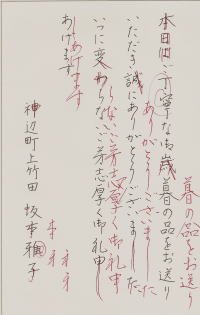 本日はご丁寧なお歳暮の品をお送り
いただき誠にありがとうございました
いつに変わらないご芳志厚く御礼申
あげます
神辺町上竹田 坂本雅子
歳暮の品をお送り
ありがとうございました
らないご芳志厚く御礼申
しあげます
本